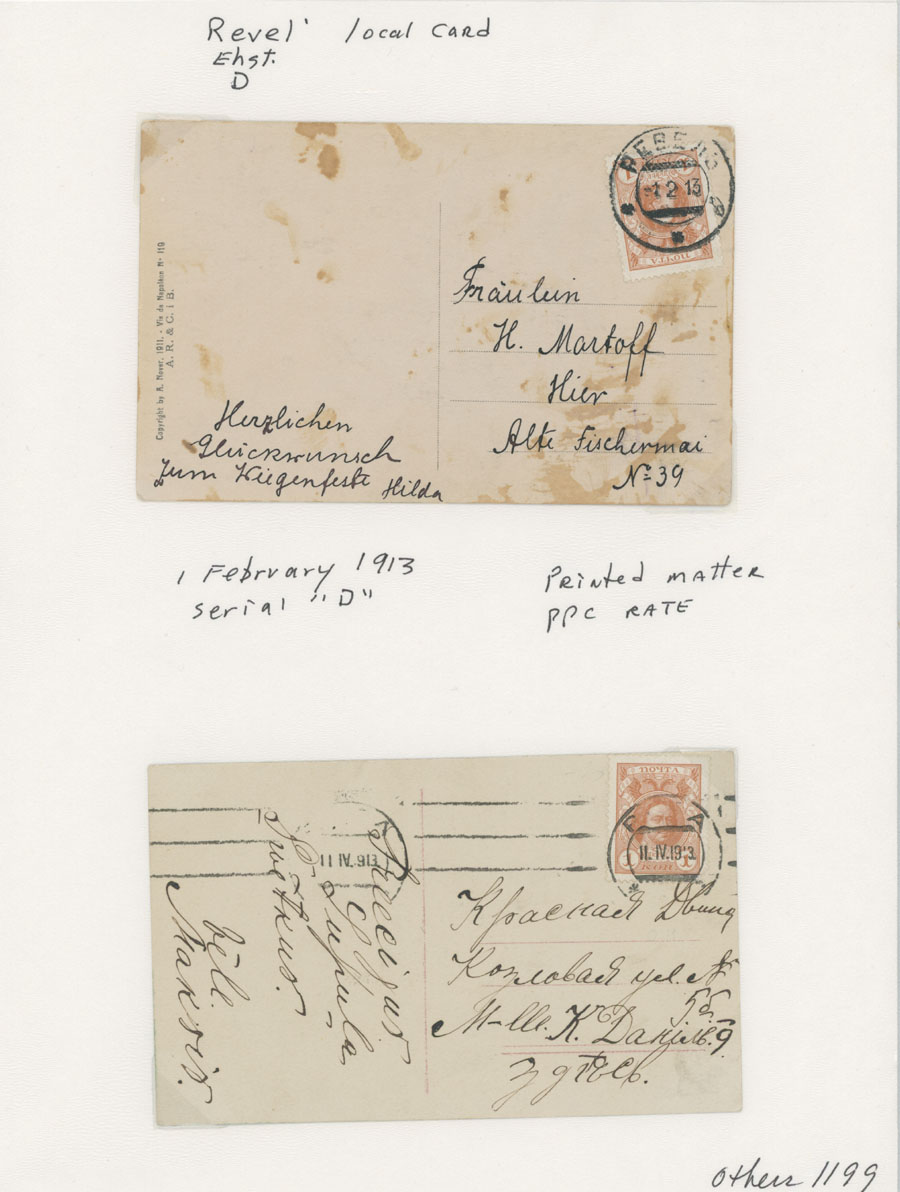 Revel' local card
Ehst.
D
РЕВЕЛЬ
-1 2 13
ПОЧТА
Copyright by A. Noyer. 1911. - Vie de Napoléon Nº 119
A. R. & C. i B.
Fräulein
H. Martoff
Hier
Alte Fischermai
Nº 39
Herzlichen
Glückwunsch
zum Wiegenfeste
Hilda
1 February 1913
serial "D"
Printed matter
PPC RATE
ПОЧТА
11.IV.1913
1 КОП 1
11 IV 1913
Красная Двина
Козловая ул. №
M-lle. К.
здѣсь.
others 1199